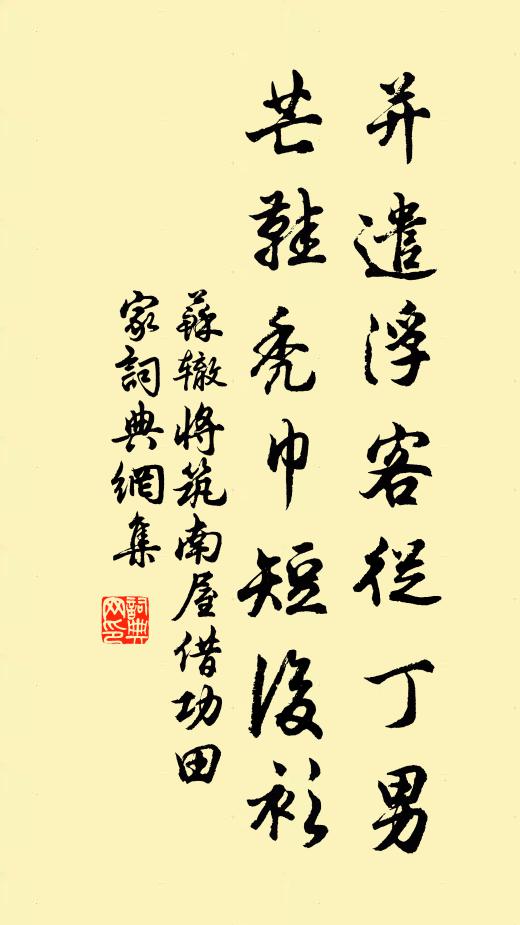 并遣浮客從丁男
芒鞋禿巾短後衫
蘇辙將筑南屋借功田
家詞典網集
詞典
网印